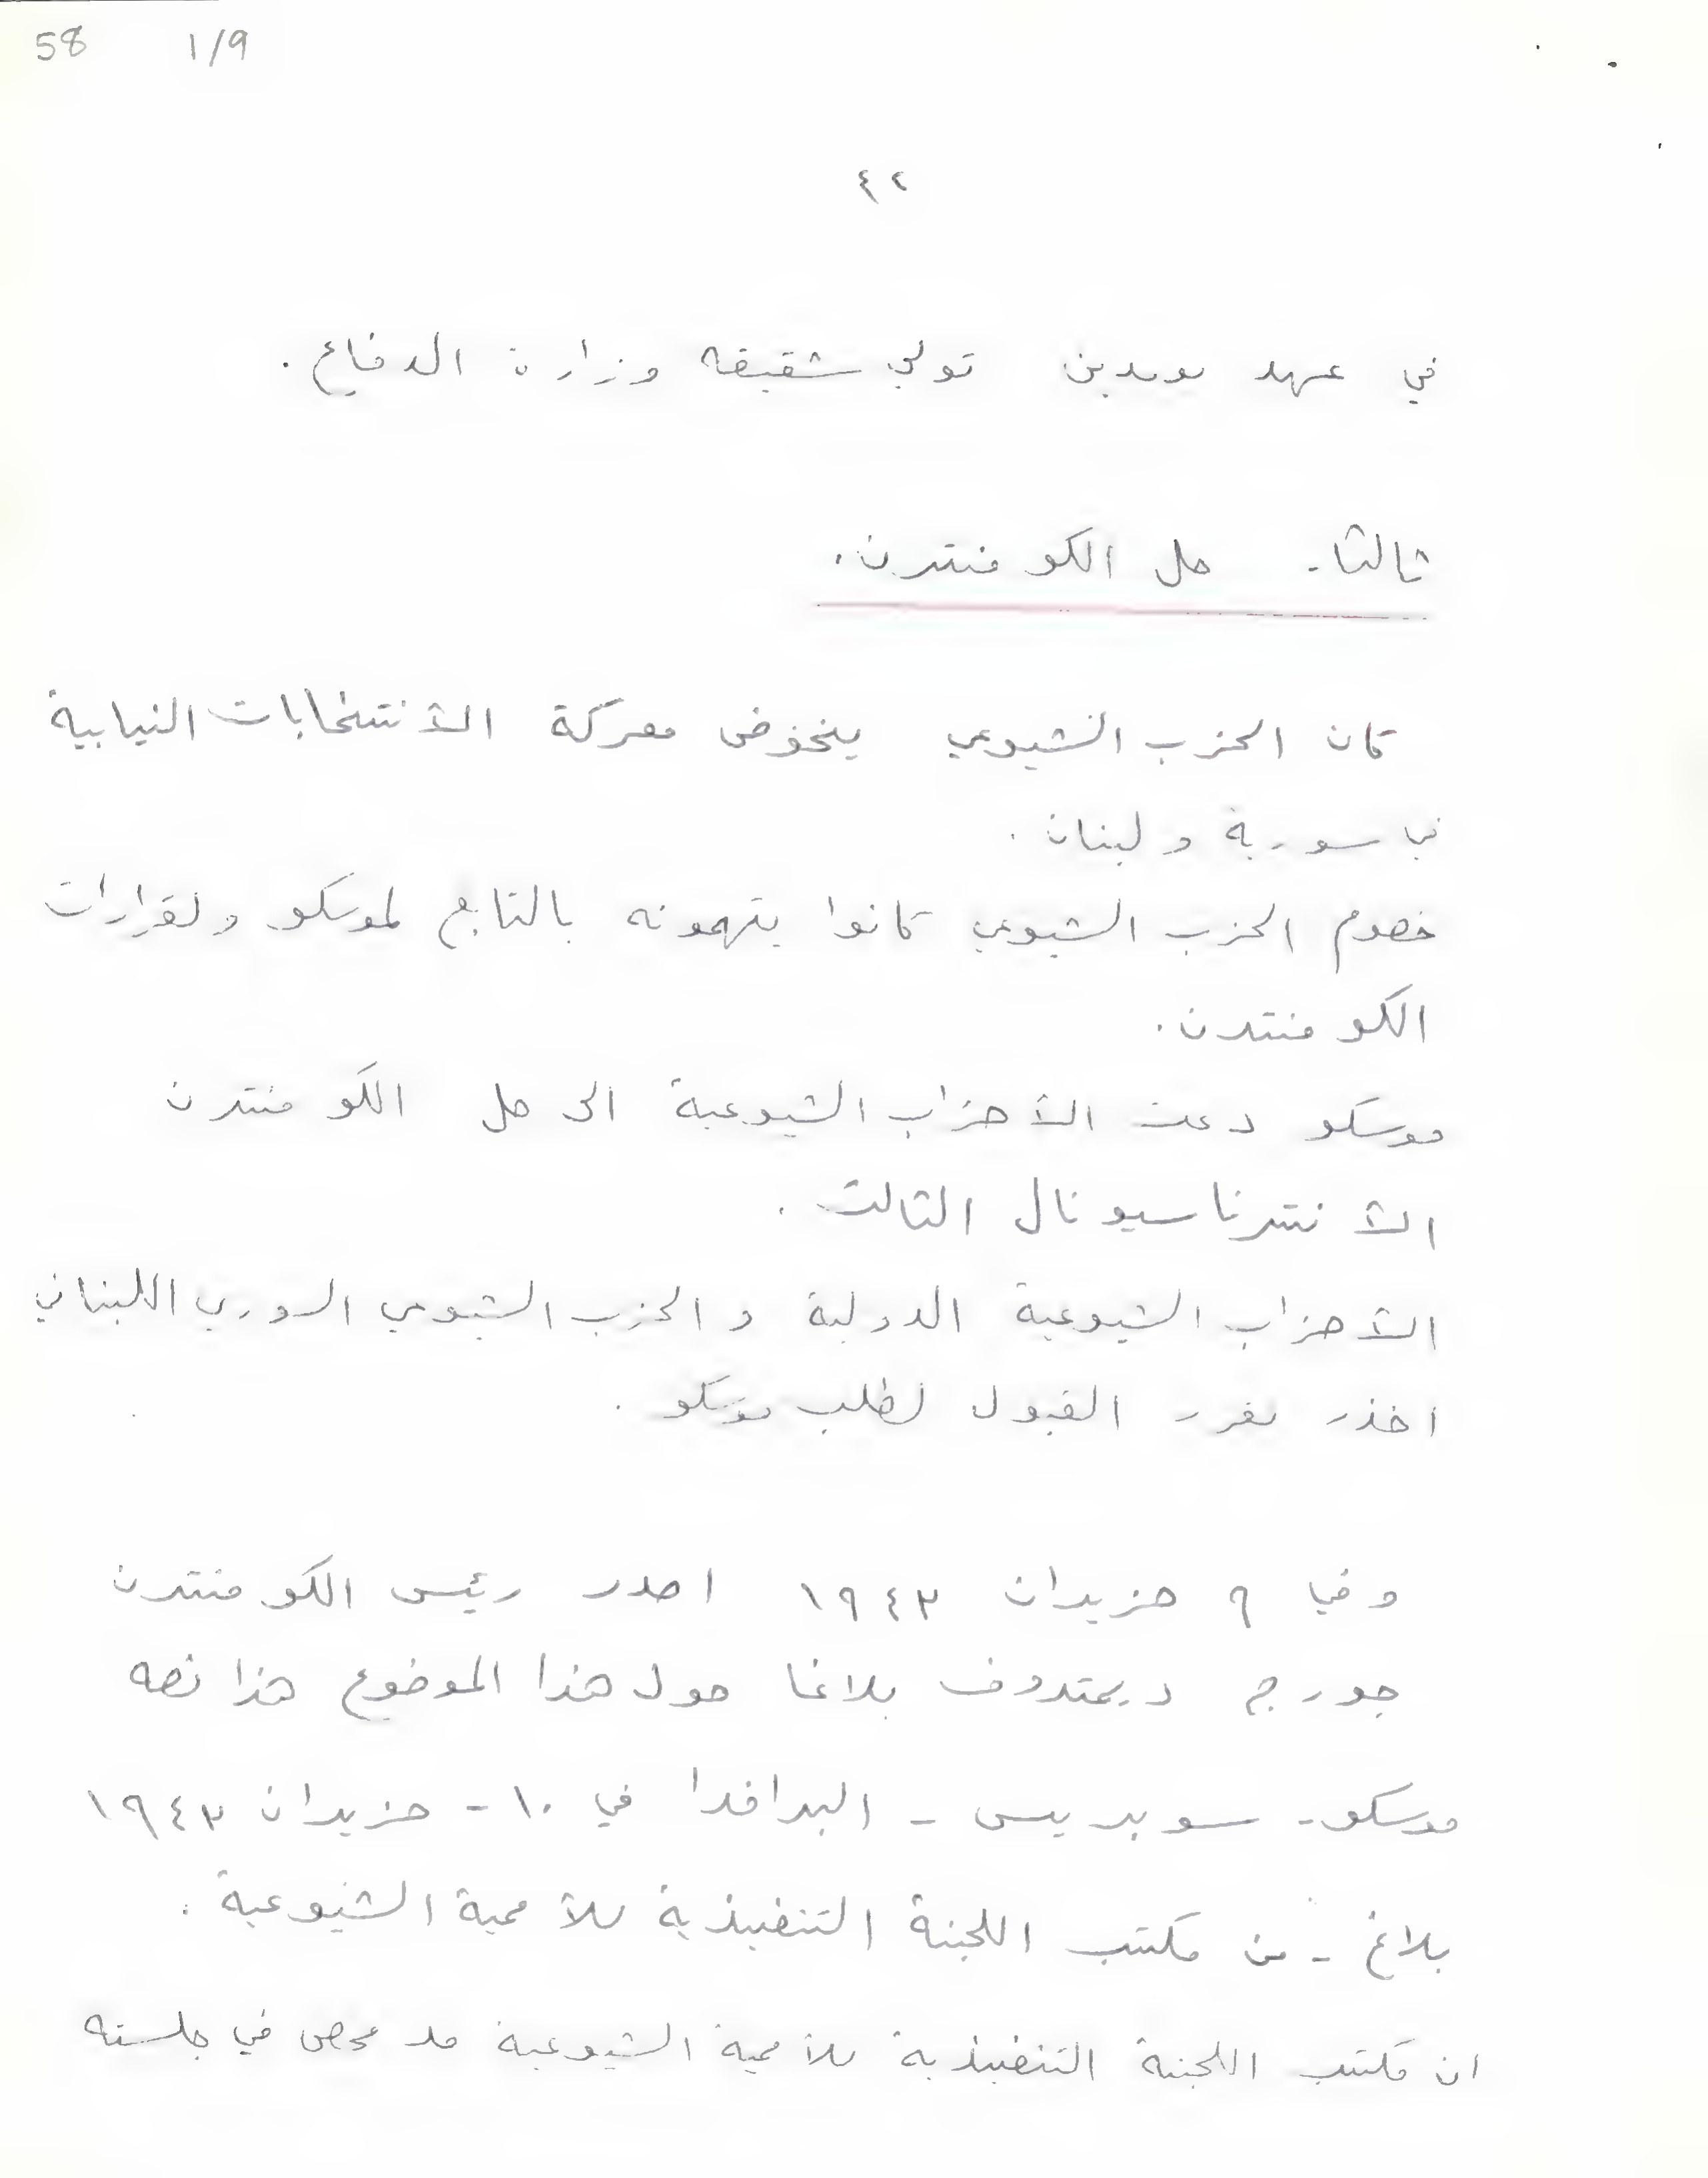 58 1/9
٤٢
في عهد بومدين تولى شقيقه وزارة الدفاع.
ثالثا- حل الكومنترن.
كان الحزب الشيوعي يخوض معركة الانتخابات النيابية
في سورية ولبنان.
خصوم الحزب الشيوعي كانوا يتهمونه بالتابع لموسكو ولقرارات
الكومنترن.
موسكو دعت الأحزاب الشيوعية الى حل الكومنترن
الانترناسيونال الثالث.
الأحزاب الشيوعية الدولية والحزب الشيوعي السوري اللبناني
القبول لطلب موسكو.
وفي ٩ حزيران ١٩٤٣ اصدر رئيس الكومنترن
جورج ديمتروف بلاغا حول هذا الموضوع هذا نصه
موسكو- سوبريس - البرافدا في ١٠- حزيران ١٩٤٣
بلاغ - من مكتب اللجنة التنفيذية للأممية الشيوعية.
ان مكتب اللجنة التنفيذية للأممية الشيوعية قد محص في جلسته